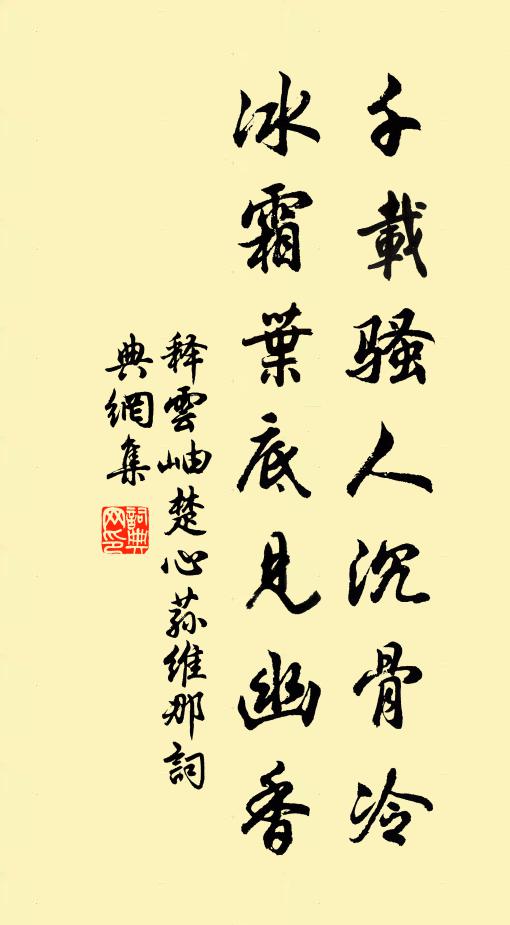 千載騷人沉骨冷
冰霜葉底見幽香
释雲岫楚心蓀維那詞
典網集
詞典
网印